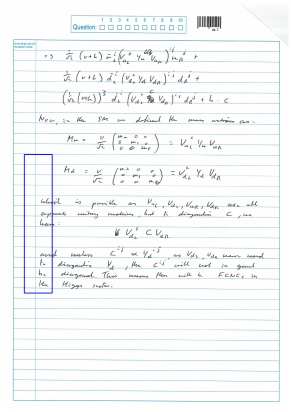 Question:
1 2 3 4 5 6 7 8 9 10
=> 1/√2 (v+h)
1/√2 (v+h) d_L^i (V_dL^† Y_d V_dR)^ij d_R^j +
(1/√2 (v+h))^3 d_L^i (V_dL^† C V_dR)^ij d_R^j + h.c
Now, in the SM we defined the mass matrices as:
M_u = v/√2 = V_uL^† Y_u V_uR
M_d = v/√2 = V_dL^† Y_d V_dR
which is possible as V_uL, V_dL, V_uR, V_dR are all
separate unitary matrices, but to diagonalise C, we
have:
V_dL^† C V_dR
and unless C^ij ∝ Y_d^ij, as V_dL, V_dR were used
to diagonalise Y_d, the C^ij will not in general
be diagonal. This means there will be FCNCs in
the Higgs sector.